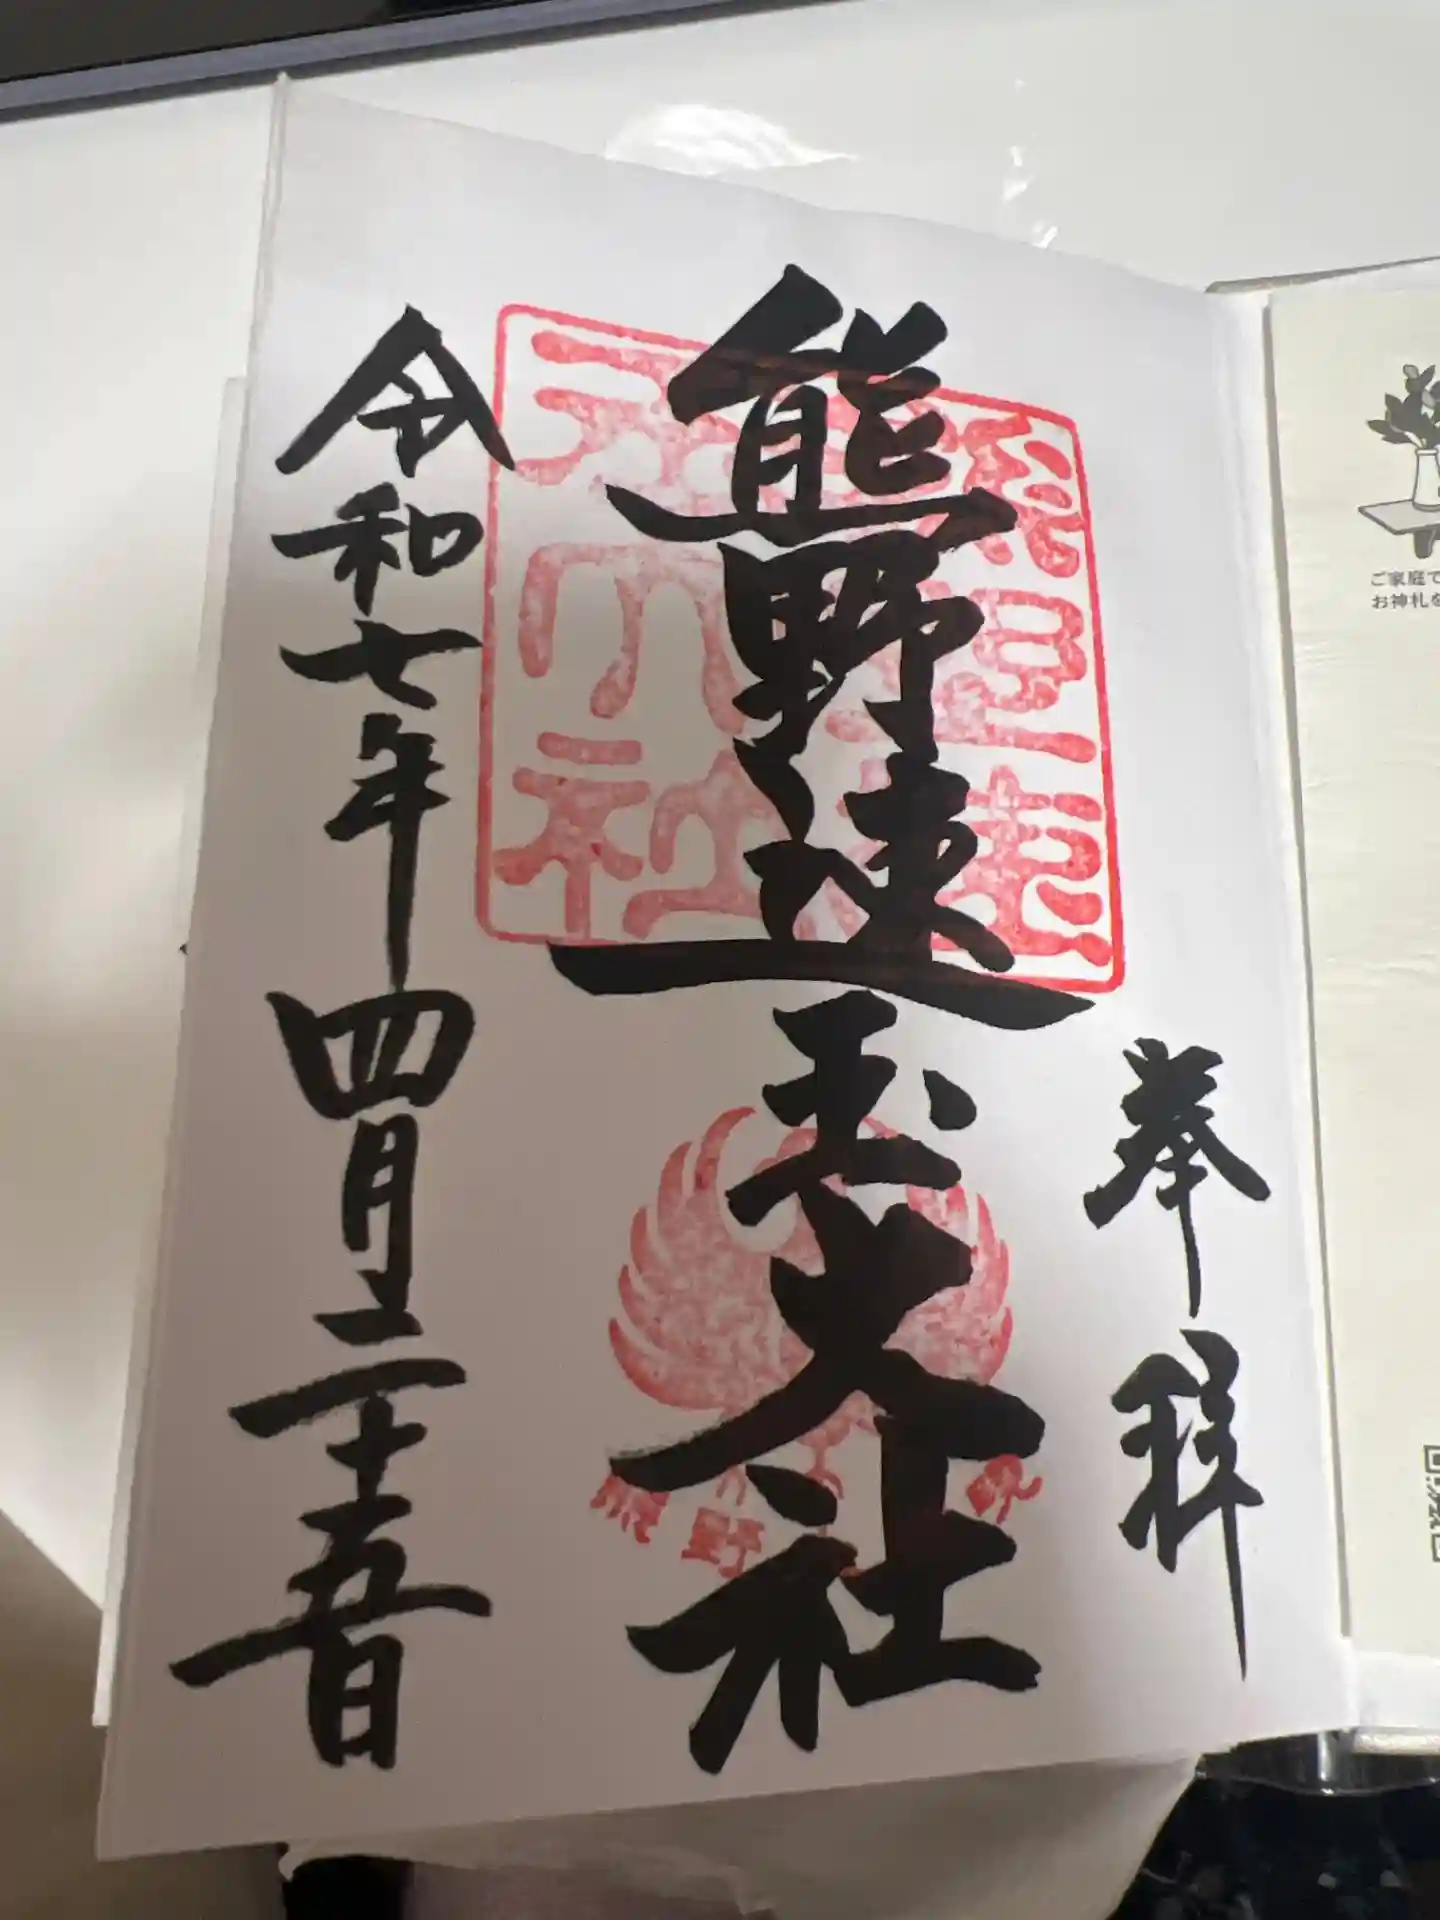 奉拝
熊野速玉大社
令和七年四月二十五日
熊野
ご家庭で
お神札を